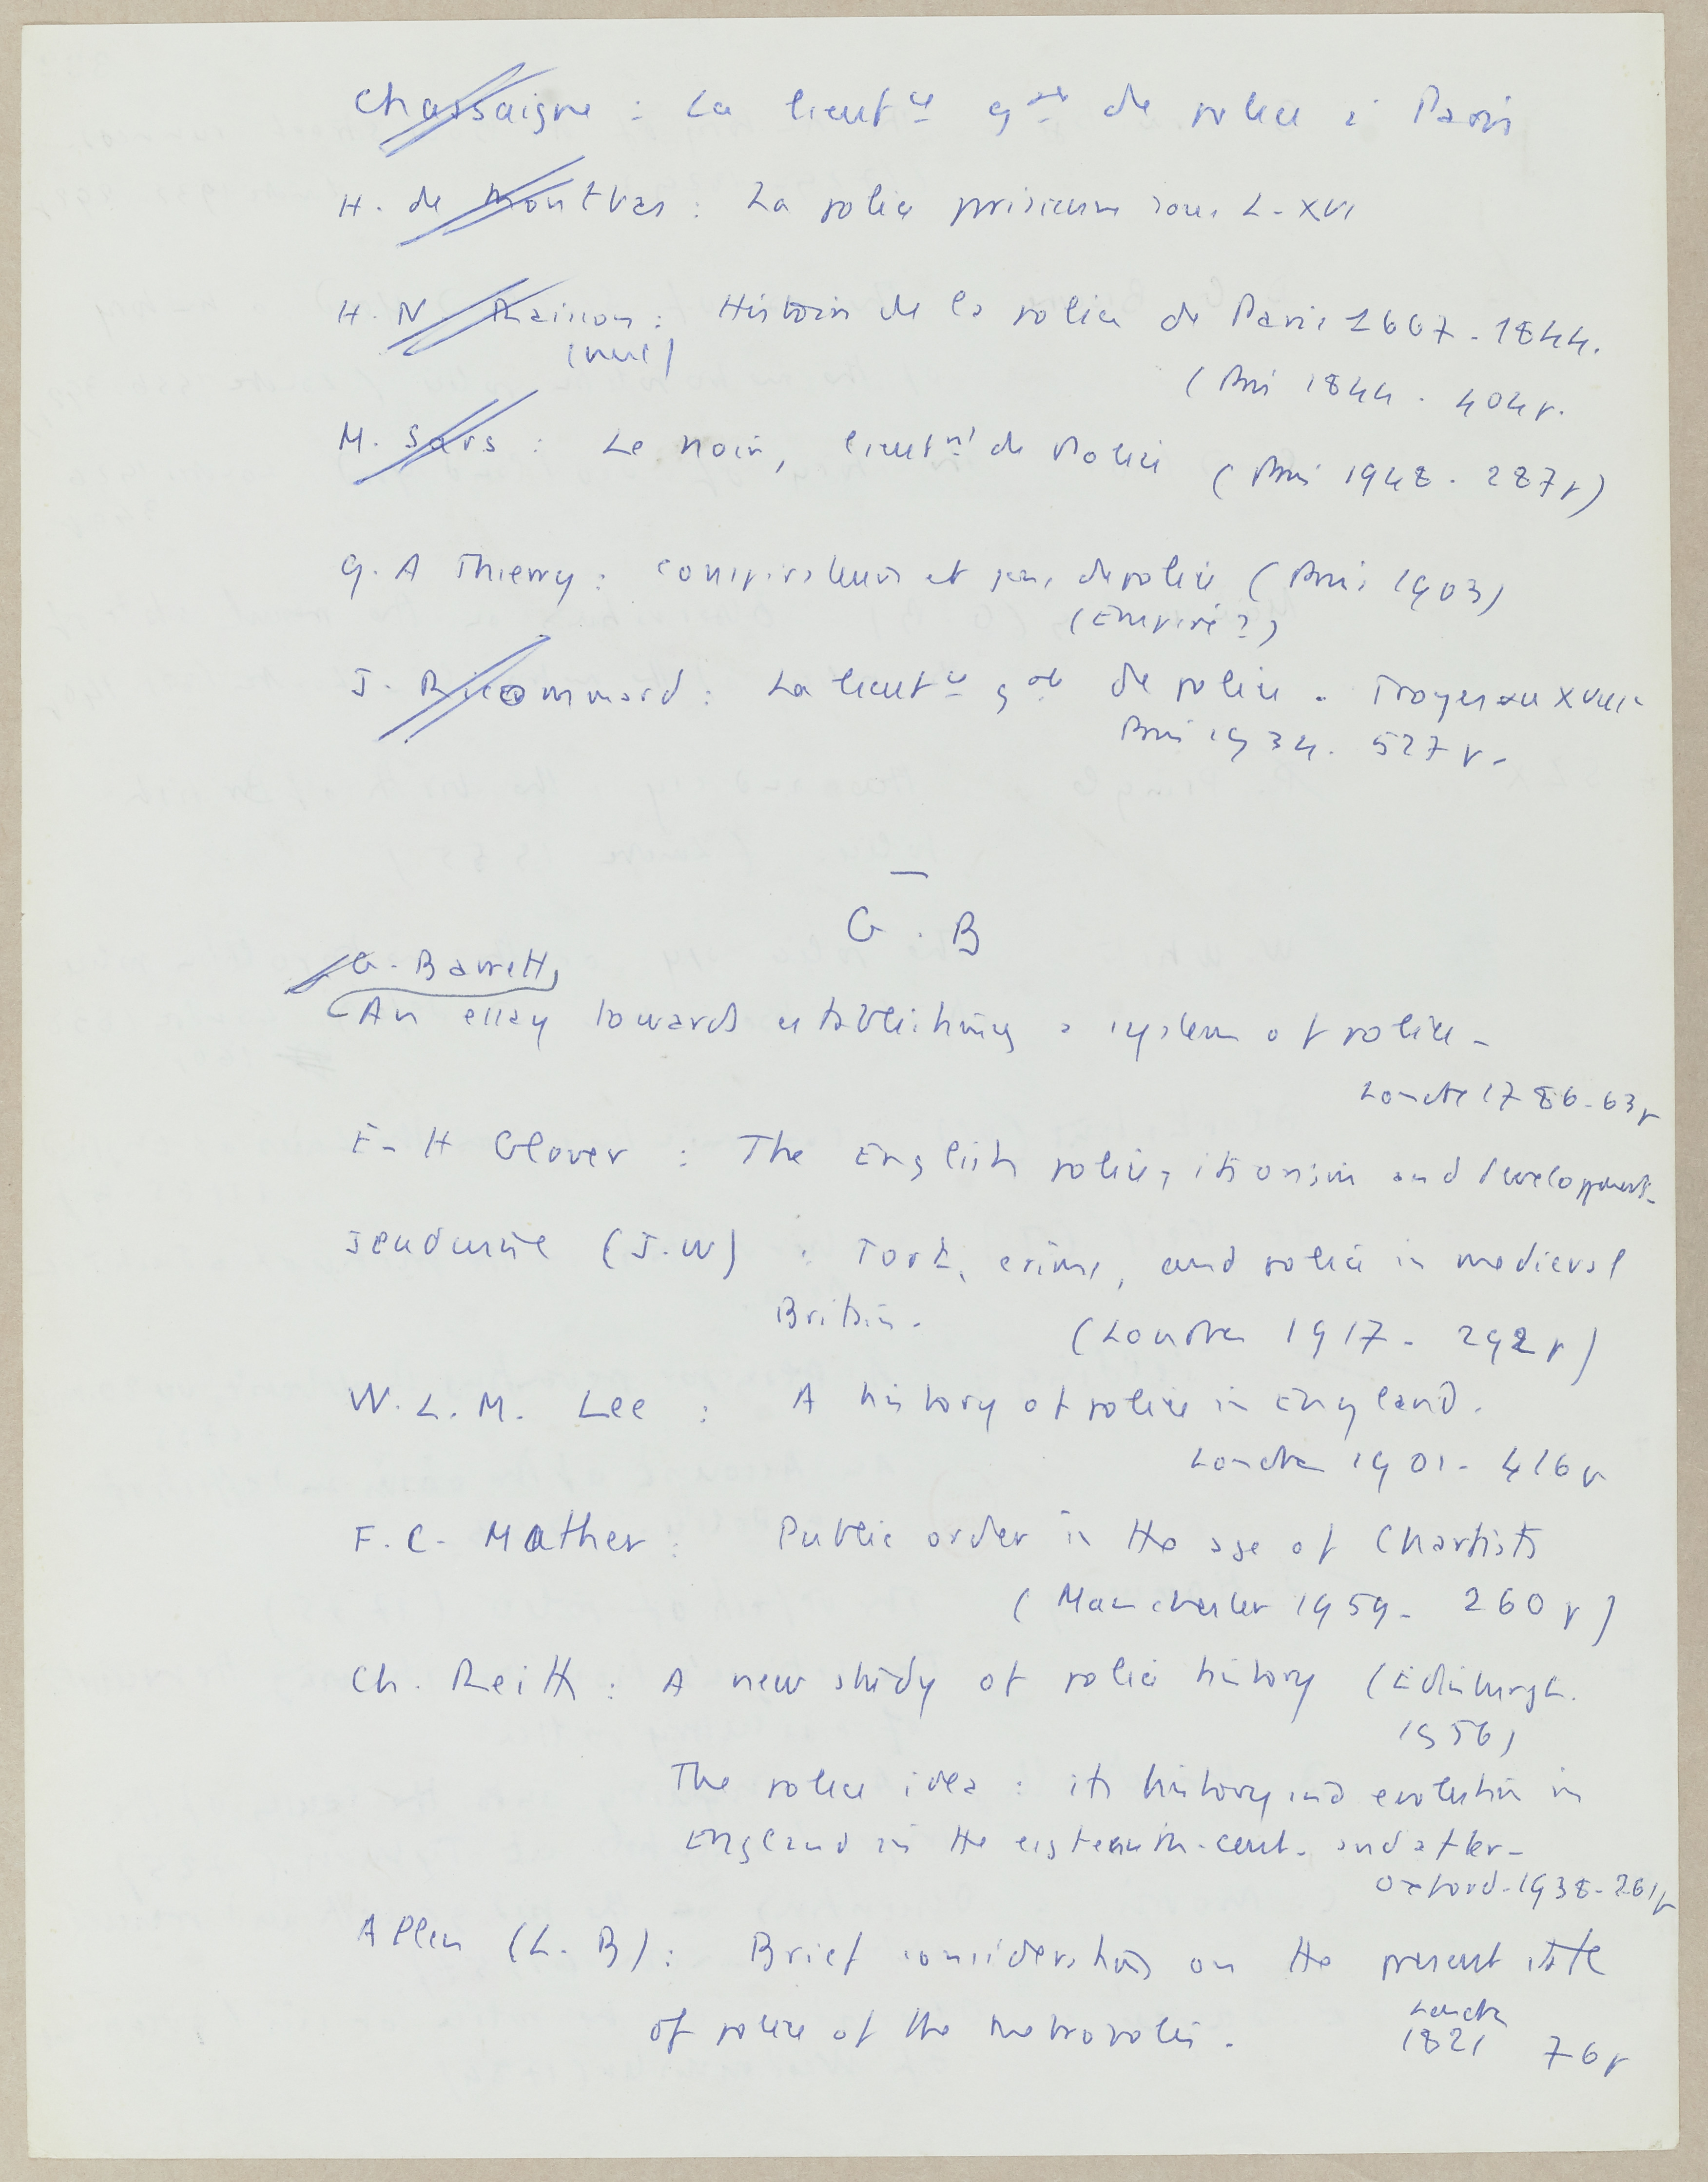 Chassaigne : La lieut ce g ale de police à Paris
H. de Montbas : La police parisienne sous L. XVI
H. N. Raisson : Histoire de la police de Paris 1667 - 1844.
(Paris 1844 . 404 p.
M. Sars : Le Noir, lieut nt de Police (Paris 1948 - 287 p)
G. A Thierry : conspirateurs et gens de police (Paris 1903)
(Empire ?)
J. Ricommard : La lieut ce g ale de police . Troyes au XVIII
Paris 1934. 527 p.
—
G . B
G. Barrett
An essay towards establishing a system of police -
Londres 1786 - 63 p
E - H Glover : The English police, its origin and development -
Jeudwine (J.W) : Tort, crime, and police in medieval
Britain. (Londres 1917 - 292 p)
W. L. M. Lee : A history of police in England.
Londres 1901 - 416 p
F. C. Mather : Public order in the age of Chartists
(Manchester 1959 - 260 p)
Ch. Reith : A new study of police history (Edinburgh.
1956)
The police idea : its history and evolution in
England in the eighteenth cent. and after -
Oxford - 1938 - 261 p
Allen (L. B) : Brief considerations on the present state
of police of the metropolis. Londres
1821 76 p